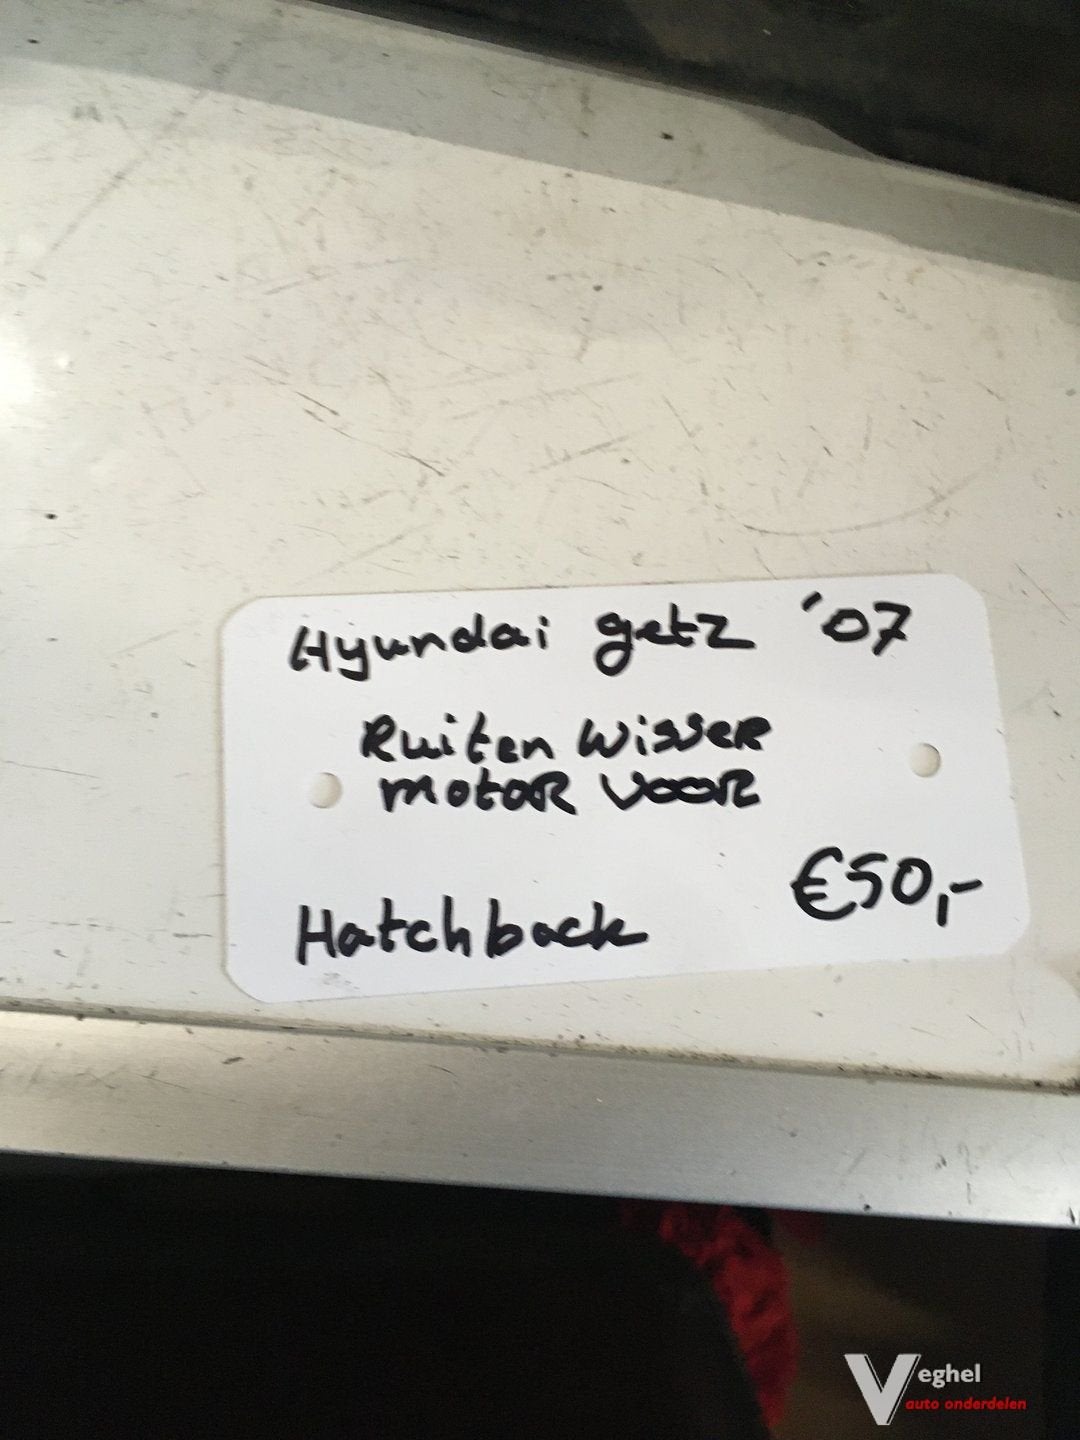 Hyundai getz '07
Ruiten Wisser
motor voor
€50,-
Hatchback
Veghel
auto onderdelen